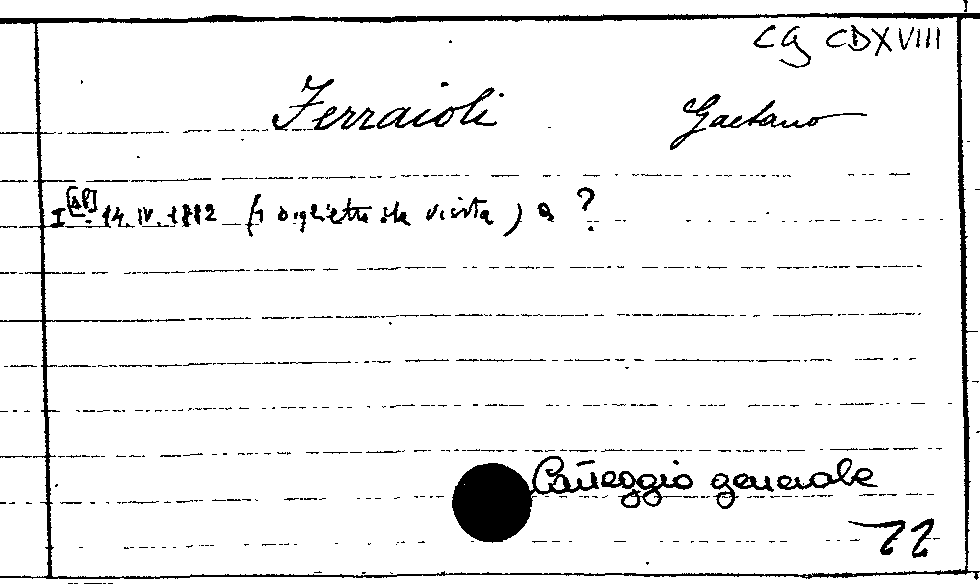 CG CDXVIII
Ferraioli Gaetano
I [Al]. 14. IV. 1882 (1 biglietto da visita) a ?
Carteggio generale
22